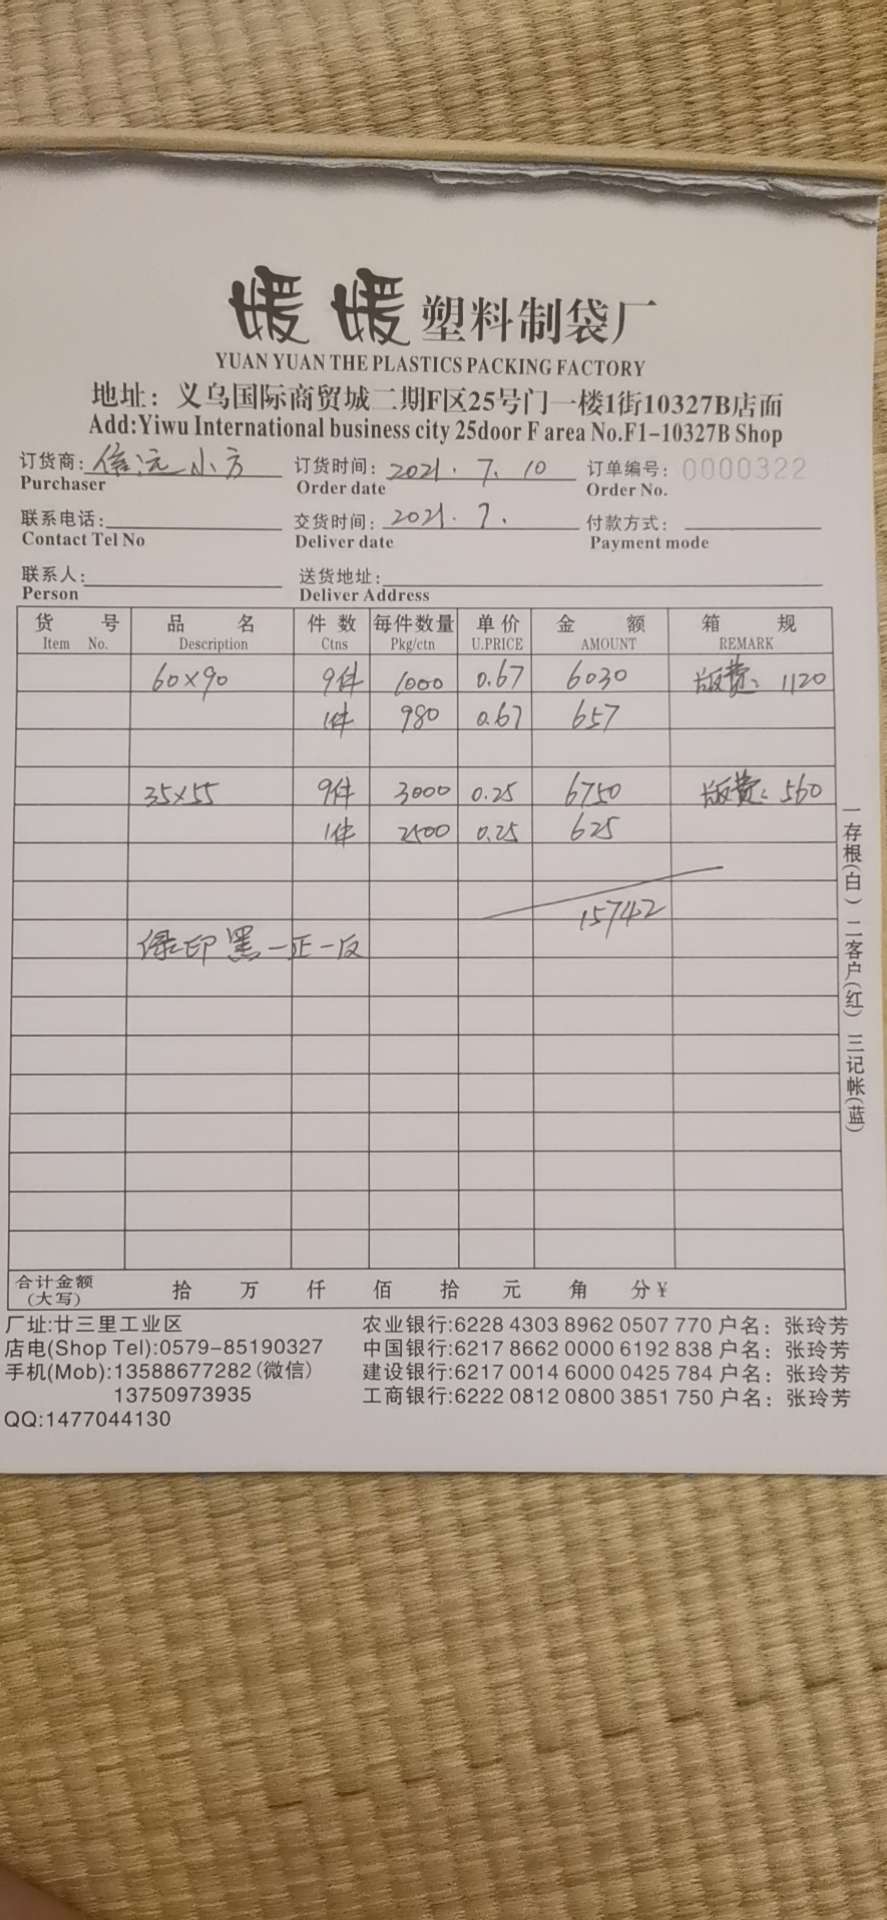 媛媛塑料制袋厂
YUAN YUAN THE PLASTICS PACKING FACTORY
地址：义乌国际商贸城二期F区25号门一楼1街10327B店面
Add:Yiwu International business city 25door F area No.F1-10327B Shop
订货商：信沅小方 订货时间：2021.7.10 订单编号：0000322
Purchaser Order date Order No.
联系电话： 交货时间：2021.7. 付款方式：
Contact Tel No Deliver date Payment mode
联系人： 送货地址：
Person Deliver Address
货号 品名 件数 每件数量 单价 金额 箱规
Item No. Description Ctns Pkg/ctn U.PRICE AMOUNT REMARK
60×90 9件 1000 0.67 6030 版费：1120
1件 980 0.67 657
35×55 9件 3000 0.25 6750 版费：560
1件 2500 0.25 625
15742
绿印黑一正一反
一存根(白) 二客户(红) 三记帐(蓝)
合计金额 拾 万 仟 佰 拾 元 角 分¥
(大写)
厂址:廿三里工业区 农业银行:6228 4303 8962 0507 770 户名：张玲芳
店电(Shop Tel):0579-85190327 中国银行:6217 8662 0000 6192 838 户名：张玲芳
手机(Mob):13588677282(微信) 建设银行:6217 0014 6000 0425 784 户名：张玲芳
13750973935 工商银行:6222 0812 0800 3851 750 户名：张玲芳
QQ:1477044130